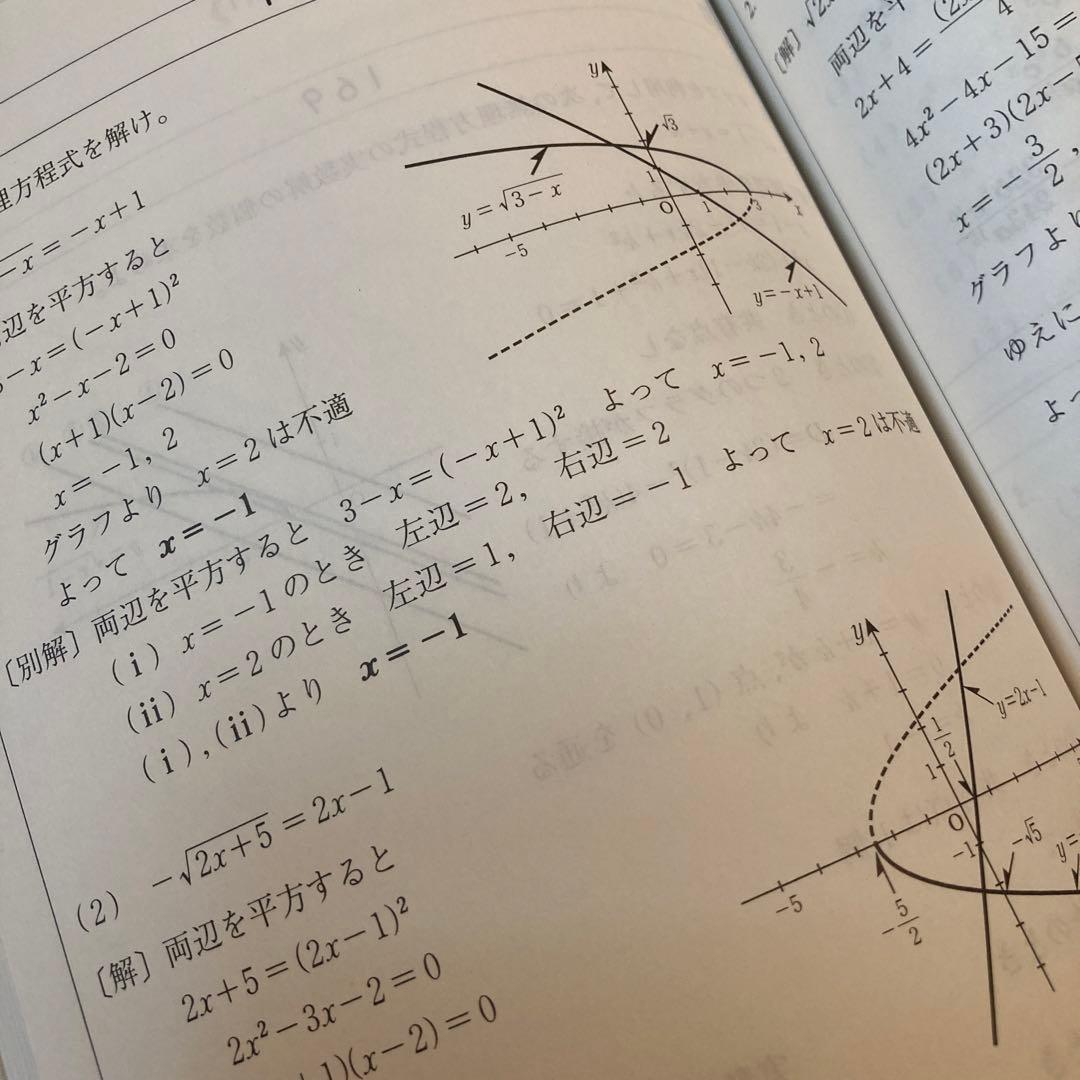 理方程式を解け。
-x = -x+1
辺を平方すると
3-x=(-x+1)²
x²-x-2=0
(x+1)(x-2)=0
x=-1, 2
グラフより x=2は不適
よって x=-1
〔別解〕両辺を平方すると 3-x=(-x+1)² よって x=-1, 2
(i) x=-1のとき 左辺=2, 右辺=2
(ii) x=2のとき 左辺=1, 右辺=-1 よって x=2は不適
(i),(ii)より x=-1
y
√3
y=√(3-x)
1
O
1
3
x
-5
y=-x+1
(2) -√(2x+5)=2x-1
〔解〕両辺を平方すると
2x+5=(2x-1)²
2x²-3x-2=0
+1)(x-2)=0
y
y=2x-1
1/2
1
O
-1
-√5
y=
-5
-5/2
〔解〕√2x
両辺を平
2x+4=(2x
4
4x²-4x-15=
(2x+3)(2x-5
x=-3/2,
グラフより
ゆえに
よっ
169